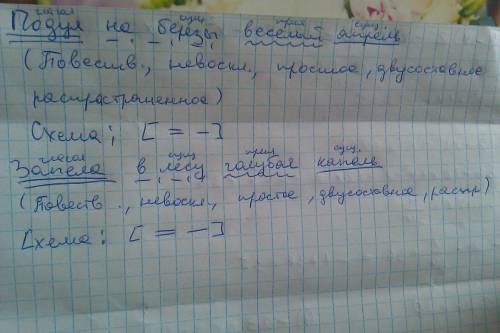 глагол сущ. прил. сущ.
Подул на березы веселый апрель
(Повеств., невоскл., простое, двусоставное
распространенное)
Схема: [ = – ]
глагол сущ прил. сущ.
Запела в лесу голубая капель
(Повеств., невоскл, простое, двусоставное, распр)
Схема: [ = – ]